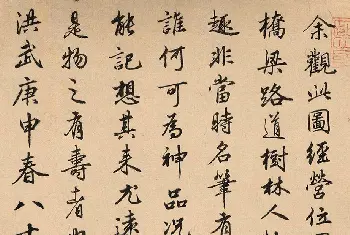 余觀此圖經營位
橋梁路道樹林人
趣非當時名筆有
誰何可為神品况
能記想其来尤遠
是物之有壽者
洪武庚申春八十